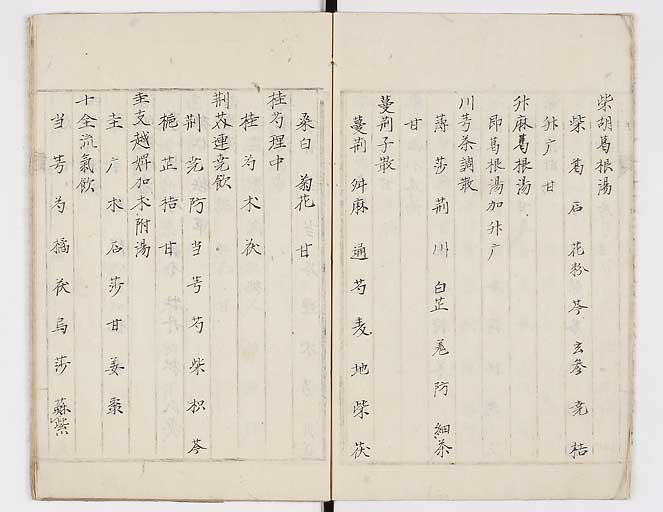 柴胡葛根湯
柴 葛 石 花粉 芩 玄参 尭 桔
升 广 甘
升麻葛根湯
即葛根湯加升广
川芎茶調散
薄 莎 荆 川 白芷 羌 防 細茶
甘
蔓荆子散
蔓荆 升麻 通 芍 麦 地 柴 茯
桑白 菊花 甘
桂芍理中
桂 芍 术 茯
荆芥連尭飲
荆 尭 防 当 芎 芍 柴 枳 芩
梔 芷 桔 甘
圭支越婢加术附湯
圭 广 术 石 莎 甘 姜 棗
十全流氣飲
当 芎 芍 橘 茯 烏 莎 蘇 紫